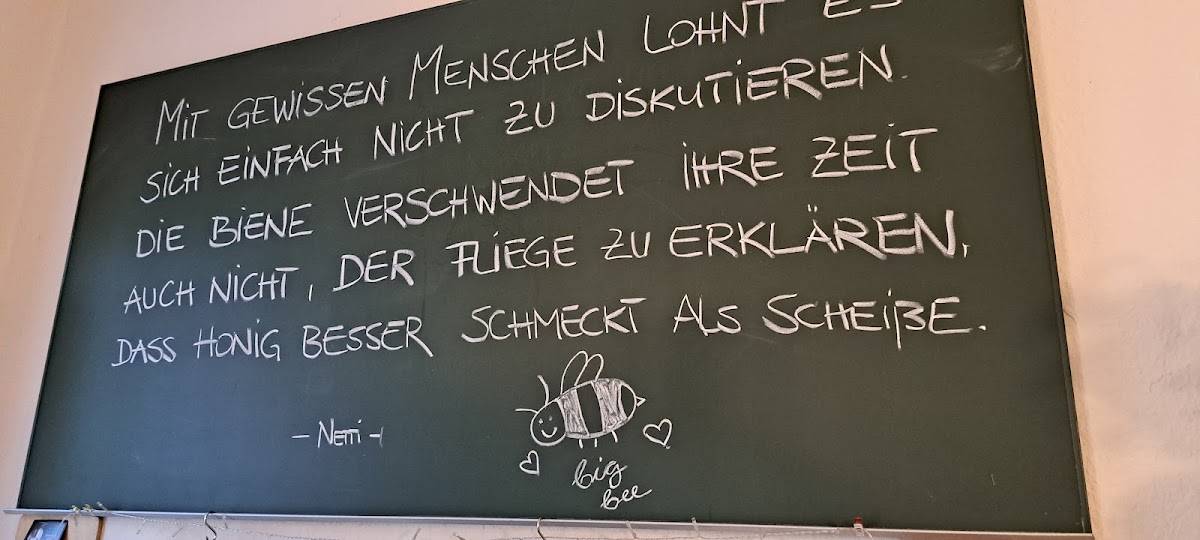 MIT GEWISSEN MENSCHEN LOHNT ES
SICH EINFACH NICHT ZU DISKUTIEREN.
DIE BIENE VERSCHWENDET IHRE ZEIT
AUCH NICHT, DER FLIEGE ZU ERKLÄREN,
DASS HONIG BESSER SCHMECKT ALS SCHEIßE.
- NETTI -
big
bee